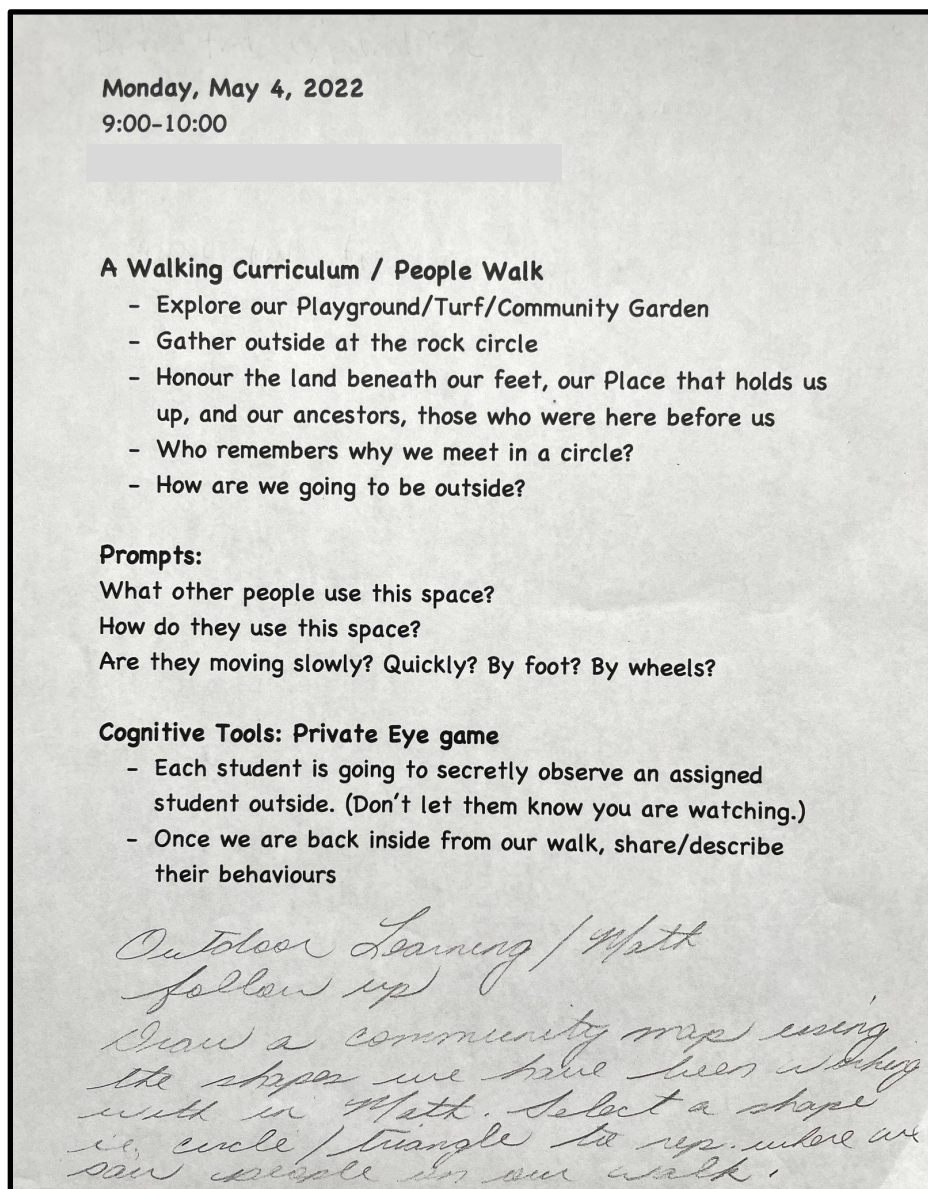 Monday, May 4, 2022
9:00-10:00
A Walking Curriculum / People Walk
- Explore our Playground/Turf/Community Garden
- Gather outside at the rock circle
- Honour the land beneath our feet, our Place that holds us
up, and our ancestors, those who were here before us
- Who remembers why we meet in a circle?
- How are we going to be outside?
Prompts:
What other people use this space?
How do they use this space?
Are they moving slowly? Quickly? By foot? By wheels?
Cognitive Tools: Private Eye game
- Each student is going to secretly observe an assigned
student outside. (Don't let them know you are watching.)
- Once we are back inside from our walk, share/describe
their behaviours
Outdoor Learning / Math
follow up
Draw a community map using
the shapes we have been working
with in Math. Select a shape
ie. circle / triangle to rep. where we
saw people on our walk.